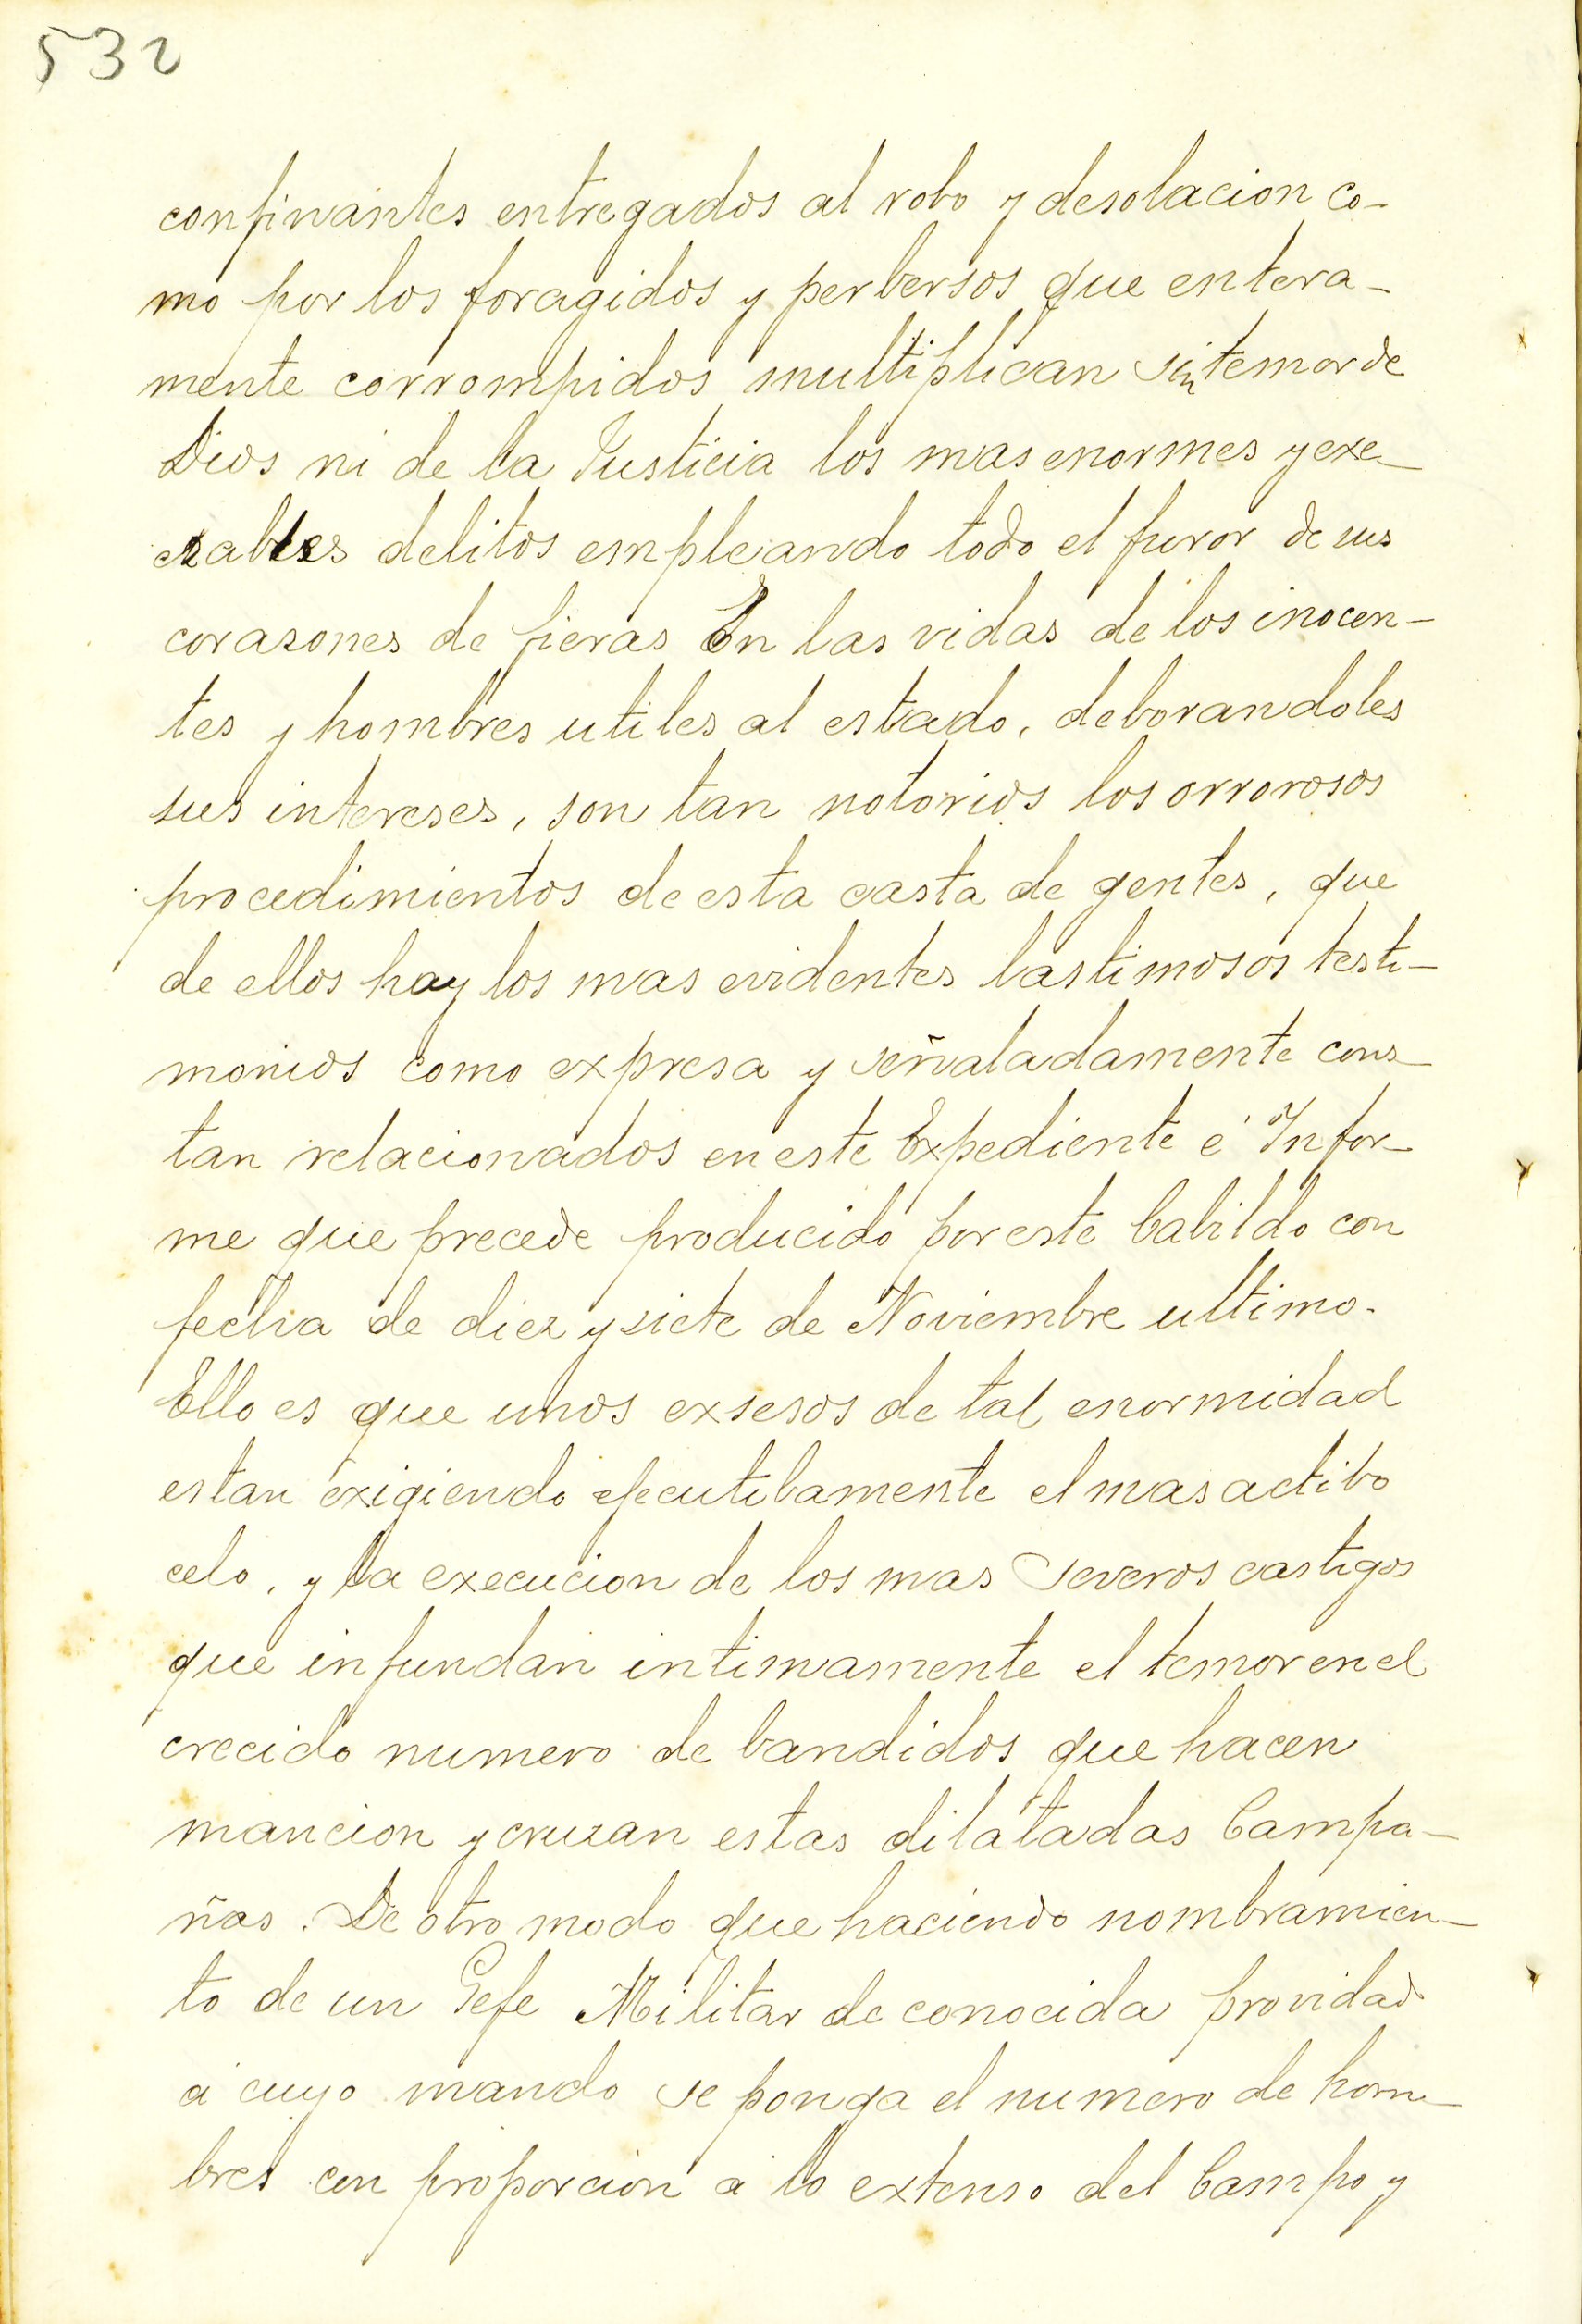 532
confinantes entregados al robo y desolacion co-
mo por los foragidos y perbersos que entera-
mente corrompidos multiplican sin temor de
Dios ni de la Justicia los mas enormes y exe-
crables delitos empleando todo el furor de sus
corasones de fieras En las vidas de los inocen-
tes y hombres utiles al estado, deborandoles
sus intereses, son tan notorios los orrorosos
procedimientos de esta casta de gentes, que
de ellos hay los mas evidentes lastimosos testi-
monios como expresa y señaladamente cons-
tan relacionados en este Expediente é Infor-
me que precede producido por este Cabildo con
fecha de diez y siete de Noviembre ultimo.
Ello es que unos exsesos de tal enormidad
estan exigiendo efecutibamente el mas actibo
celo, y la execucion de los mas severos castigos
que infundan intimamente el temor en el
crecido numero de bandidos que hacen
mancion y cruzan estas dilatadas Campa-
ñas. De otro modo que haciendo nombramien-
to de un Gefe Militar de conocida providad
á cuyo mando se ponga el numero de hom-
bres con proporcion a lo extenso del Campo y